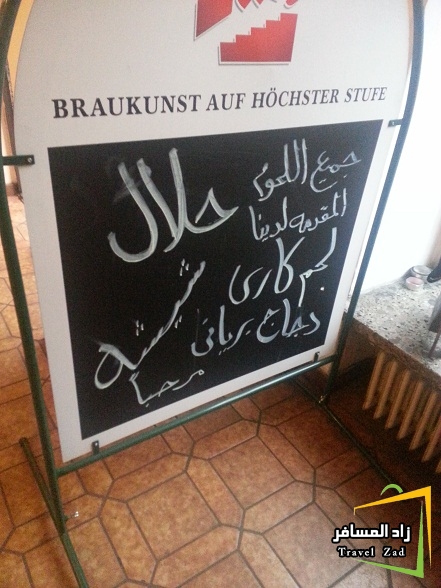 BRAUKUNST AUF HÖCHSTER STUFE
جميع اللحوم
المقدمه لدينا
حلال
لحم كاري
دجاج برياني
شيشه
مرحبا
زاد المسافر
Travel Zad